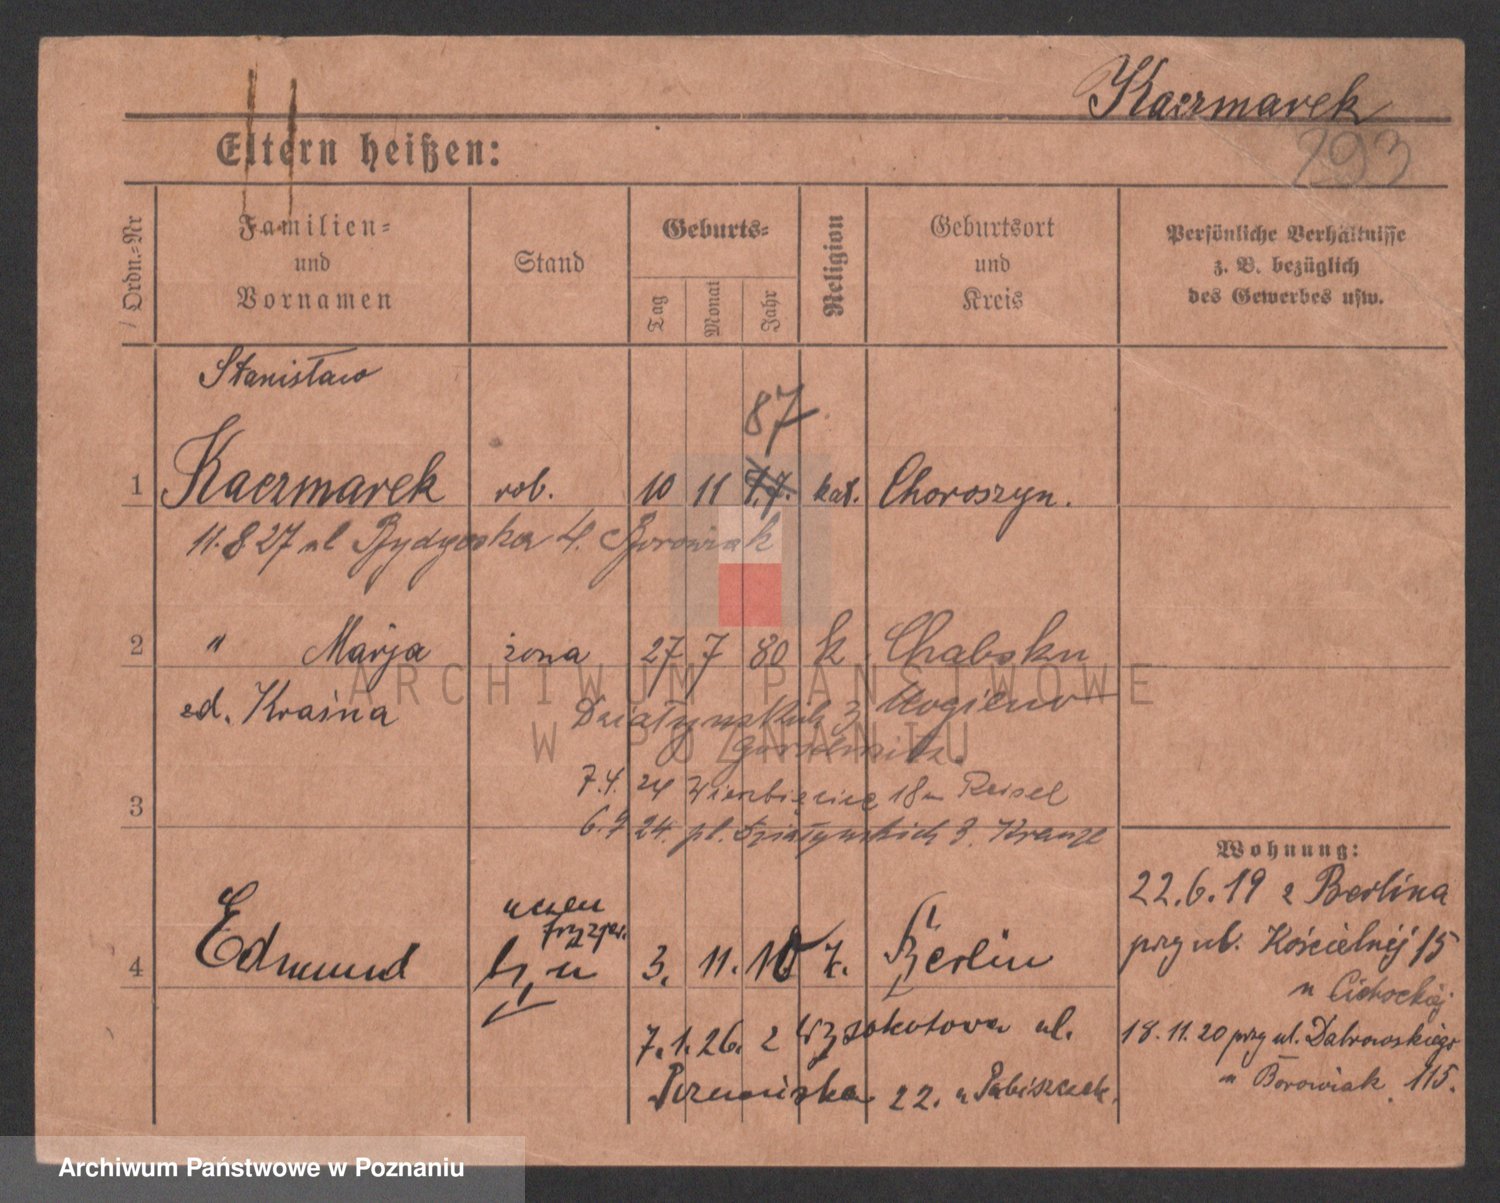 Kaczmarek
293
Eltern heißen:
Ordn.-Nr
Familien-
und
Vornamen
Stand
Geburts-
Tag
Monat
Jahr
Religion
Geburtsort
und
Kreis
Persönliche Verhältnisse
z. B. bezüglich
des Gewerbes usw.
Stanisław
87
1 Kaczmarek rob. 10 11 kat. Choroszyn.
11.8 27 ul Bydgoska 4. Borowiak
2 " Marja żona 27 7 80 k Chabsku
zd. Kraśna Działyńskich 3 Mogilno
7.4. 24 Wierzbięcice 18 Reisel
3
6.9 24. pl. Działyńskich 3. Kranz
Wohnung:
22.6.19 z Berlina
przy ul. Kościelnéj 15
u Cichockiéj
18.11.20 przy ul. Dabrowskiego
u Borowiak 115.
uczeń
fryzjer.
4 Edmund syn 3. 11. 10 k. Berlin
7.1.26. z Wysokotowa ul.
22. u
ARCHIWUM PAŃSTWOWE
W POZNANIU
Archiwum Państwowe w Poznaniu